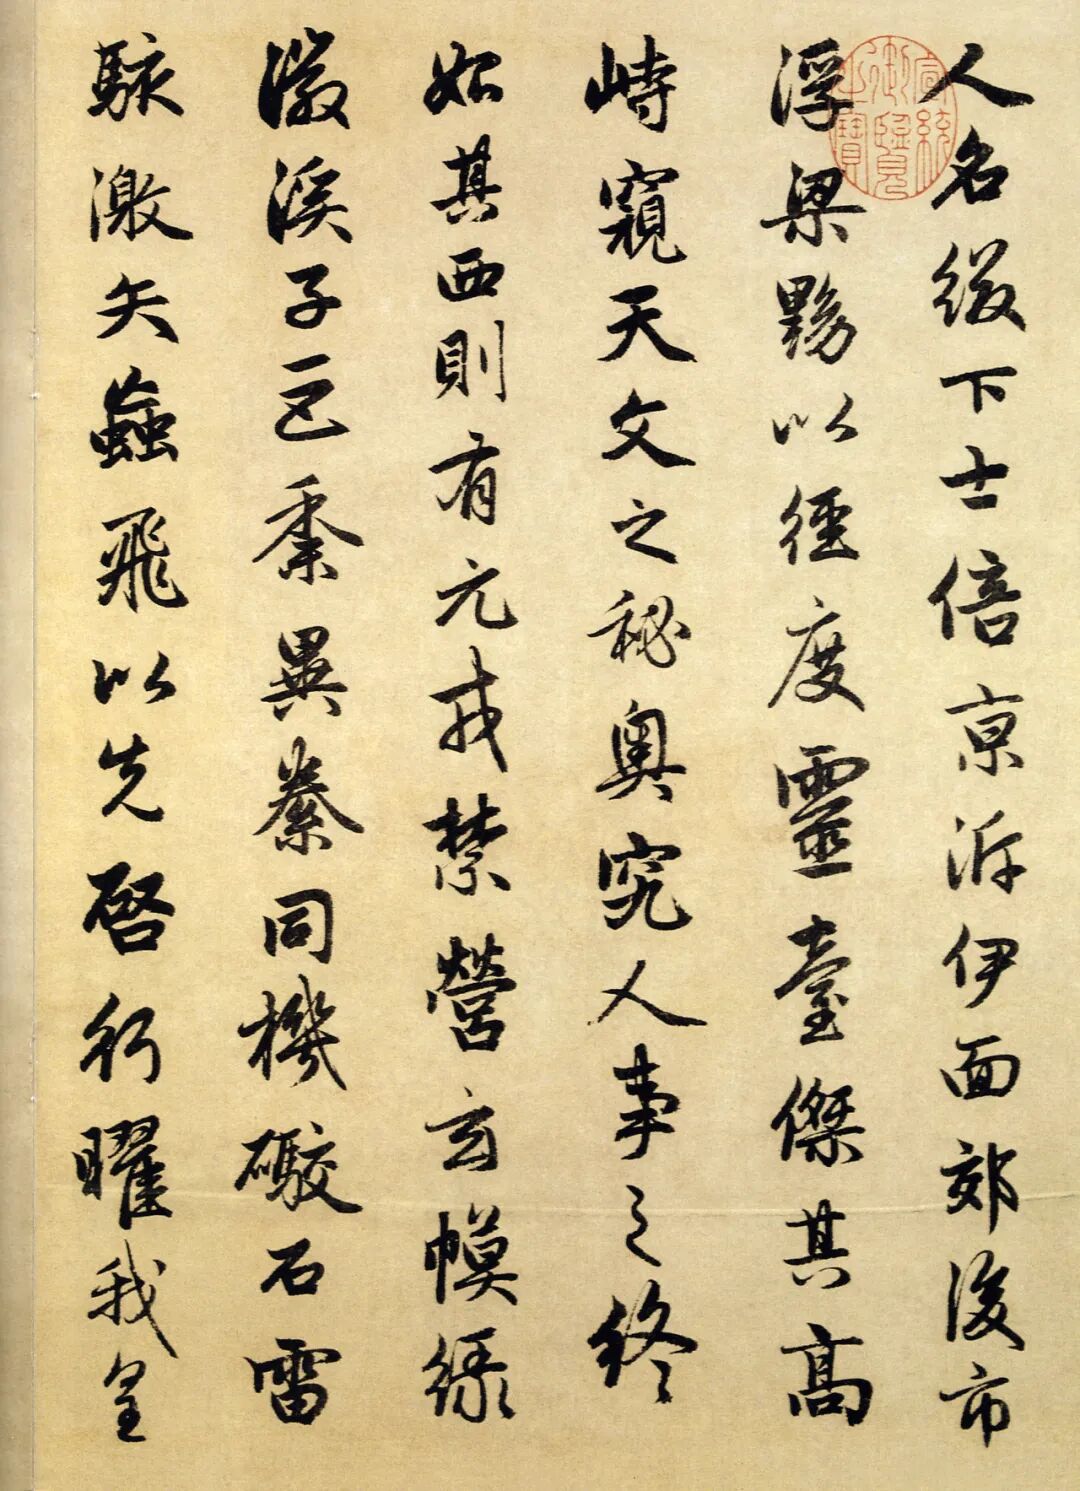 人名綴下士倍京泝伊面郊後市
浮梁黝以徑度靈臺傑其高
峙窺天文之秘奥究人事之終
始其西則有元戎禁營玄幙緑
徽溪子巨黍異絭同機礮石雷
駭激矢蝱飛以先啓行曜我皇
宣統御覽之寶